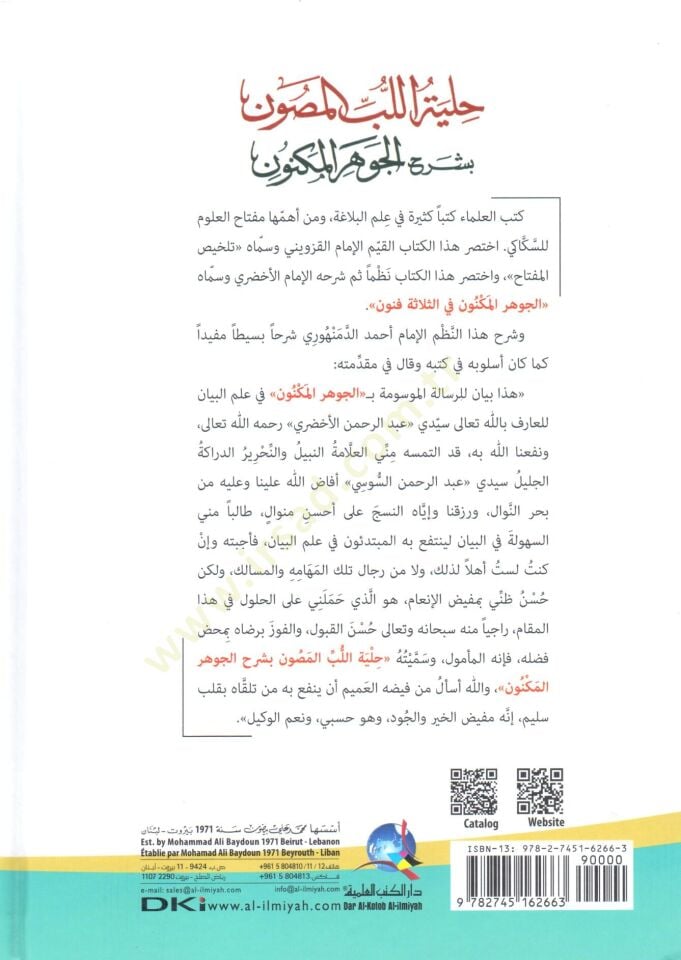 حلية اللب المصون
بشرح الجوهر المكنون
كتب العلماء كتباً كثيرة في عِلم البلاغة، ومن أهمّها مفتاح العلوم
للسَّكَّاكي. اختصر هذا الكتاب القيّم الإمام القزويني وسمّاه «تلخيص
المفتاح»، واختصر هذا الكتاب نَظْماً ثم شرحه الإمام الأخضري وسمّاه
«الجوهر المَكْنُون في الثلاثة فنون».
وشرح هذا النَّظْم الإمام أحمد الدَّمَنْهُوري شرحاً بسيطاً مفيداً
كما كان أسلوبه في كتبه وقال في مقدِّمته:
«هذا بيان للرسالة الموسومة بـ«الجوهر المَكْنُون» في علم البيان
للعارف بالله تعالى سيّدي «عبد الرحمن الأخضري» رحمه الله تعالى،
ونفعنا الله به، قد التمسه مِنّي العلَّامةُ النبيلُ والنِّحْريرُ الدراكةُ
الجليلُ سيدي «عبد الرحمن السُّوسِي» أفاض الله علينا وعليه من
بحر النَّوال، ورزقنا وإيَّاه النسجَ على أحسن منوالٍ، طالباً مني
السهولةَ في البيان لينتفع به المبتدئون في علم البيان، فأجبته وإنْ
كنتُ لستُ أهلاً لذلك، ولا من رجال تلك المَهَامِهِ والمسالك، ولكن
حُسْنُ ظنّي بمفيض الإنعام، هو الَّذي حَمَلَني على الحلول في هذا
المقام، راجياً منه سبحانه وتعالى حُسْنَ القبول، والفوزَ برضاه بِمحض
فضله، فإنه المأمول، وسَمَّيْتُهُ «حِلْيَة اللُّبِّ المَصُون بشرح الجوهر
المَكْنُون»، والله أسألُ من فيضه العَميم أن ينفع به من تلقَّاه بقلب
سليم، إنَّه مفيض الخير والجُود، وهو حسبي، ونعم الوكيل».
www.irsad.com.tr
Catalog
Website
أسسها محمد علي بيضون سنة 1971 بيروت - لبنان
Est. by Mohammad Ali Baydoun 1971 Beirut - Lebanon
Établie par Mohamad Ali Baydoun 1971 Beyrouth - Liban
ص.ب 9424 - 11 بيروت - لبنان
هاتف 12 / 11 / 804810 5 961+
رياض الصلح - بيروت 2290 1107
فاكس 804813 5 961+
e-mail: sales@al-ilmiyah.com
info@al-ilmiyah.com
DKi www.al-ilmiyah.com
دار الكتب العلمية
Dar Al-Kotob Al-ilmiyah
ISBN-13: 978-2-7451-6266-3
90000
9 782745 162663